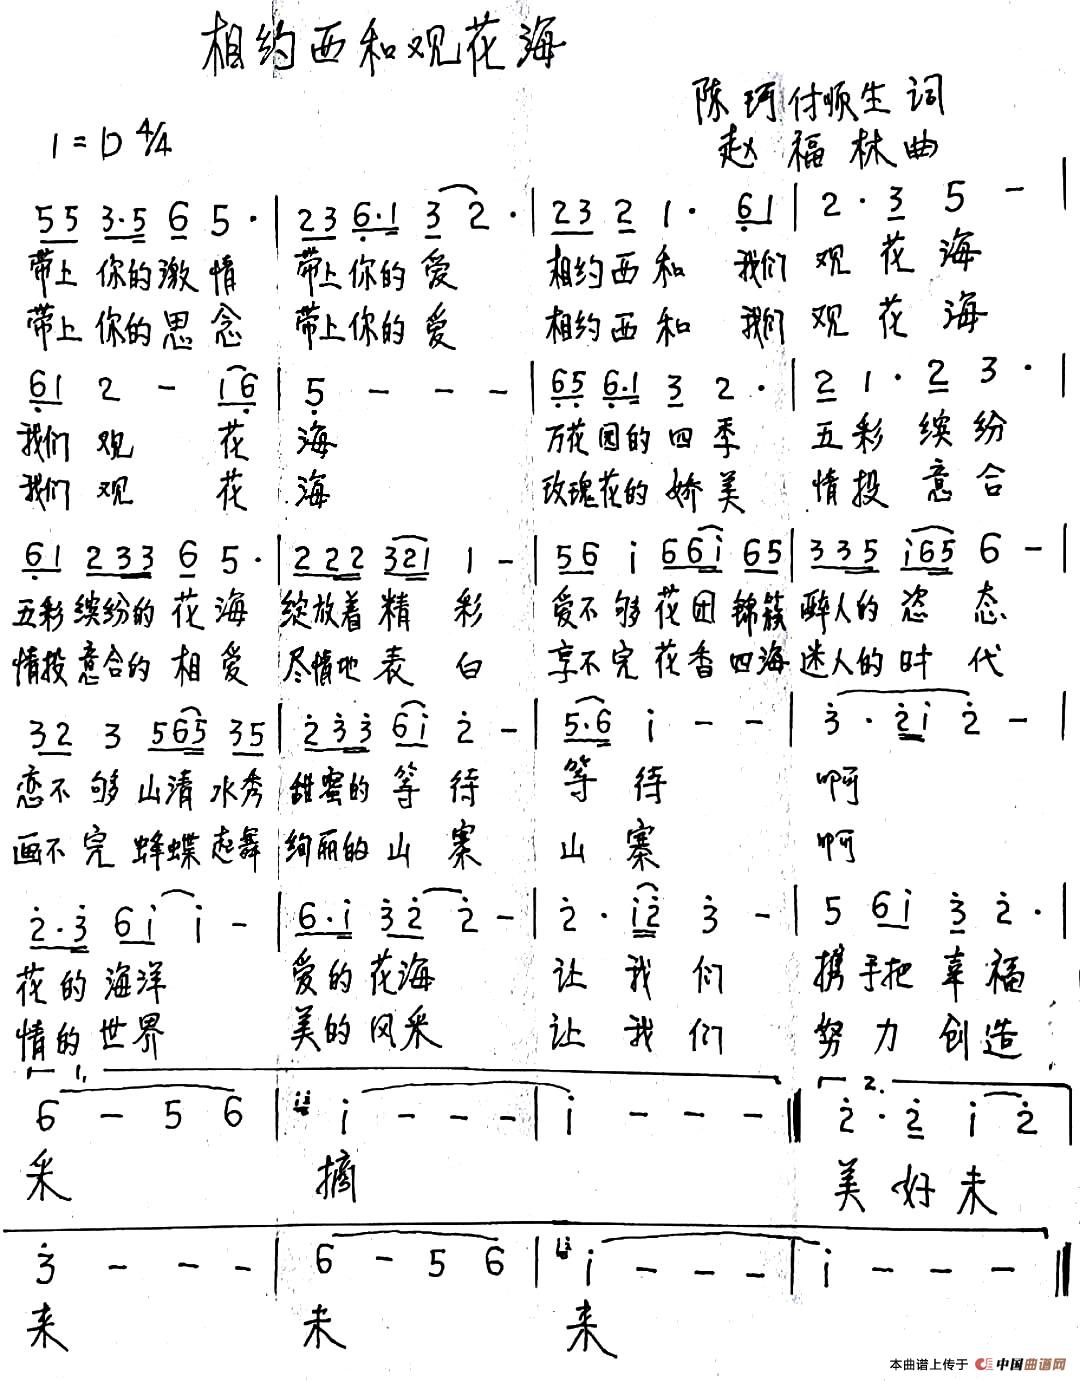 相约西和观花海
陈珂付顺生词
1=D 4/4
赵福林曲
55 3·5 6 5· | 23 6·1 3 2· | 23 2 1· 61 | 2·3 5 - |
带上你的激情 带上你的爱 相约西和 我们观花海
带上你的思念 带上你的爱 相约西和 我们观花海
61 2 - 16 | 5 - - - | 65 6·1 3 2· | 2 1· 2 3· |
我们观花海 万花园的四季 五彩缤纷
我们观花海 玫瑰花的娇美 情投意合
61 233 6 5· | 222 321 1 - | 56 i 66i 65 | 335 i65 6 - |
五彩缤纷的花海 绽放着精彩 爱不够花团锦簇 醉人的姿态
情投意合的相爱 尽情地表白 享不完花香四海 迷人的时代
32 3 565 35 | 233 6i 2 - | 5·6 i - - | 3·2i 2 - |
恋不够山清水秀 甜蜜的等待 等待 啊
画不完蜂蝶起舞 绚丽的山寨 山寨 啊
2·3 6i i - | 6·i 32 2 - | 2· i2 3 - | 5 6i 3 2· |
花的海洋 爱的花海 让我们 携手把幸福
情的世界 美的风采 让我们 努力创造
1. 2.
6 - 5 6 | i - - - | i - - - | 2·2 i 2 |
采 摘 美好未
3 - - - | 6 - 5 6 | i - - - | i - - - |
来 未 来
本曲谱上传于 中国曲谱网